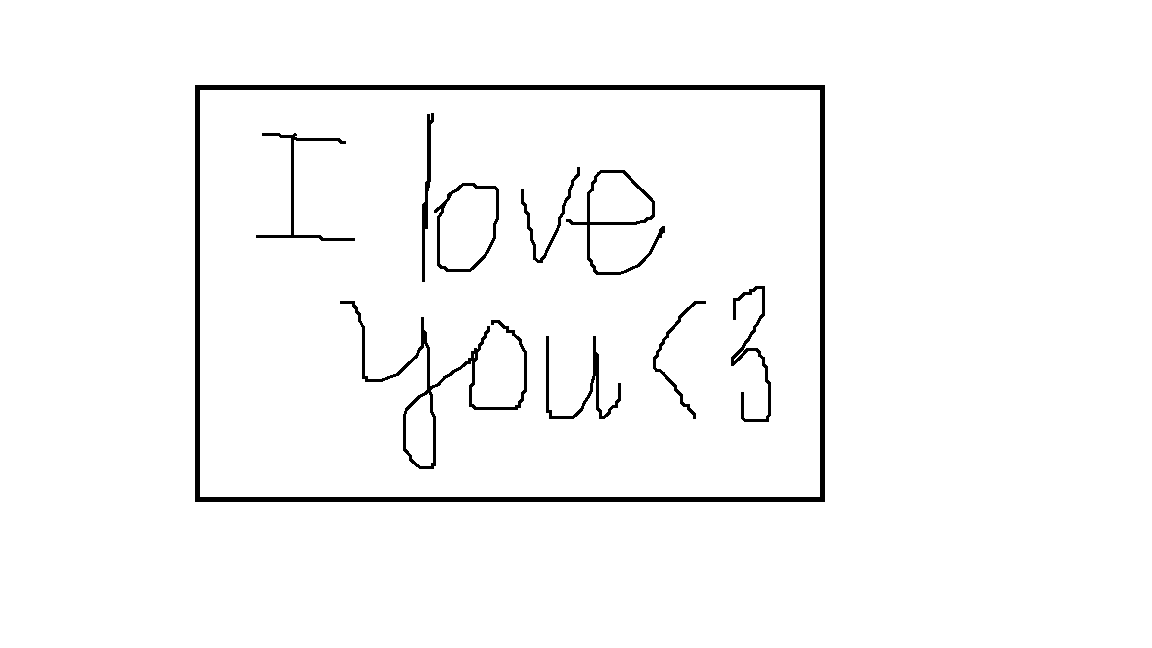 I love
you <3